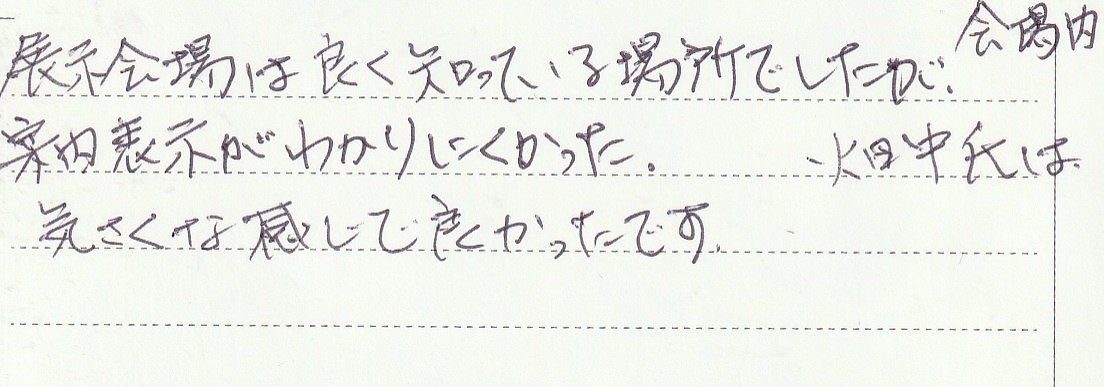 展示会場は良く知っている場所でしたが、会場内
案内表示がわかりにくかった。 畑中氏は
気さくな感じで良かったです。